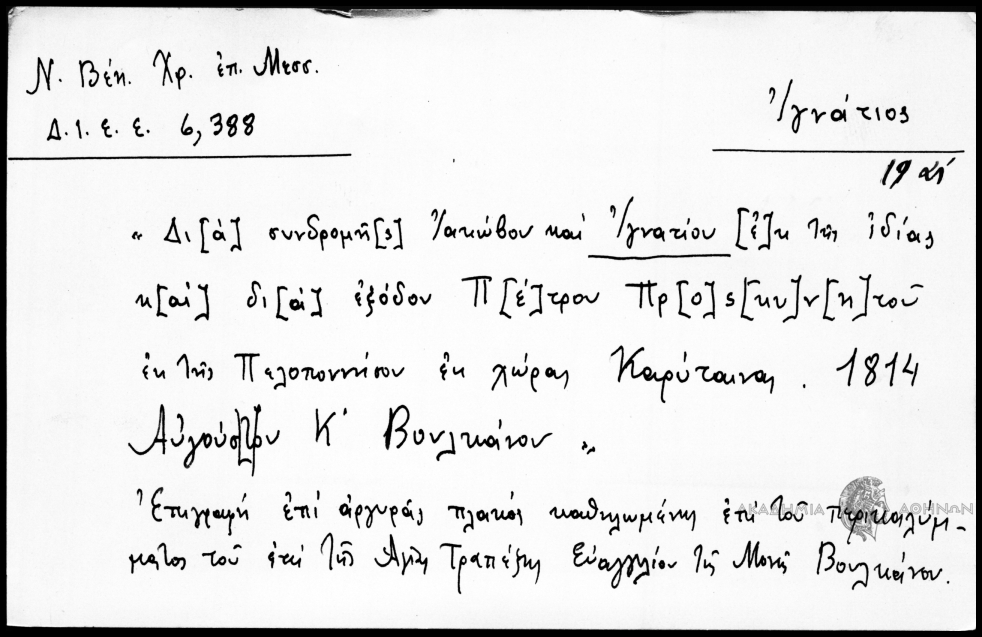 Ν. Βέη. Χρ. ἐπ. Μεσσ.
Δ.Ι.Ε.Ε. 6,388
Ἰγνάτιος
19 αἰ
« Δι[ὰ] συνδρομῆ[ς] Ἰακώβου καὶ Ἰγνατίου [ἐ]κ τῆς ἰδίας
κ[αὶ] δι[ὰ] ἐξόδου Π[έ]τρου Πρ[ο]ς[κυ]ν[η]τοῦ
ἐκ τῆς Πελοποννήσου ἐκ χώρας Καρύταινας. 1814
Αὐγούστου Κ΄ Βουλκάνου »
Ἐπιγραφὴ ἐπὶ ἀργυρᾶς πλακὸς καθηλωμένης ἐπὶ τοῦ περικαλύμ-
ματος τοῦ ἐπὶ τῆς Ἁγίας Τραπέζης Εὐαγγελίου τῆς Μονῆς Βουλκάνου.
ΑΚΑΔΗΜΙΑ ΑΘΗΝΩΝ